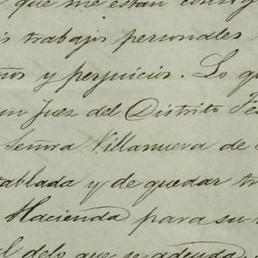 que me están
is trabajos personales
os y perjuicios. Lo q
un Juez del Distrito Fe
Señora Villanueva de
tablada y de quedar tr
Hacienda para su
delo que se adeuda